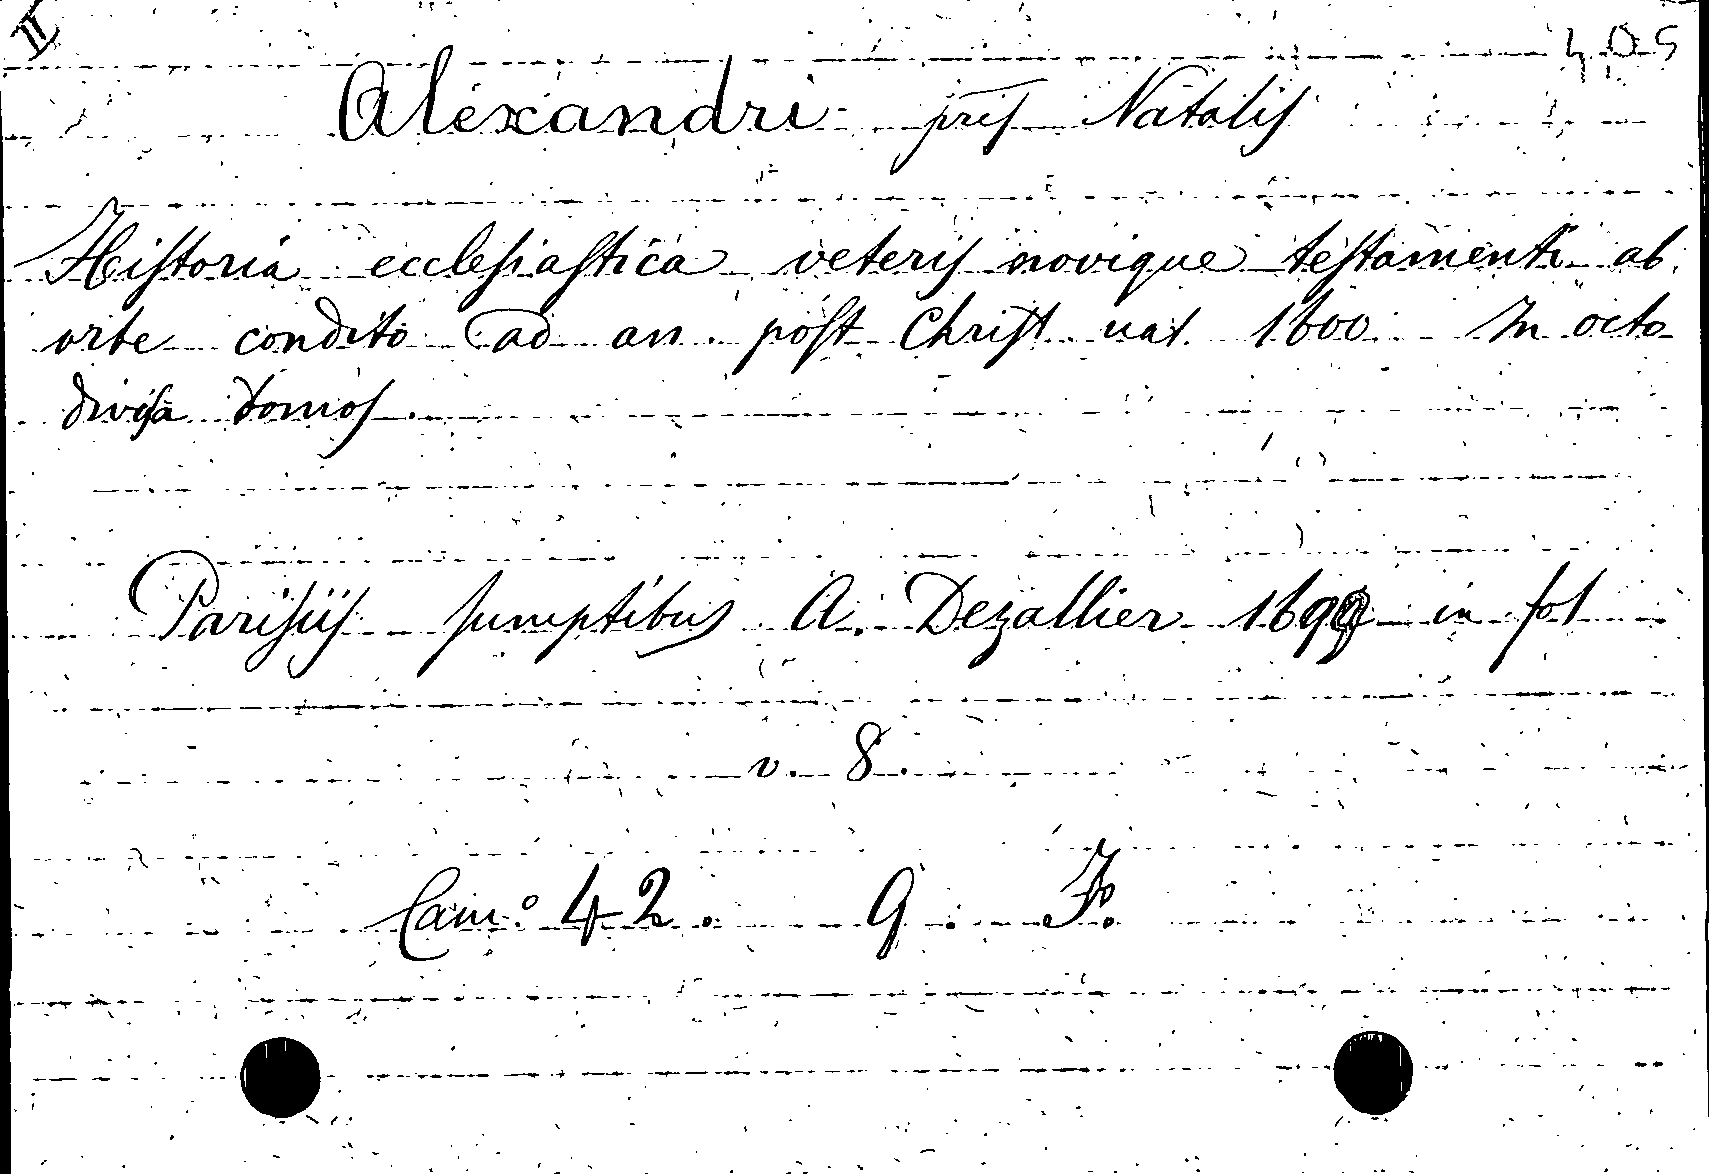 II
405
Alexandri pris Natalis
Historia ecclesiastica veteris novique testamenti ab
orbe condito ad an. post Christ. nat. 1600. In octo
divisa tomos.
Parisiis sumptibus A. Dezallier 1699 in fol
v. 8.
Cam:º 42. 9. F.